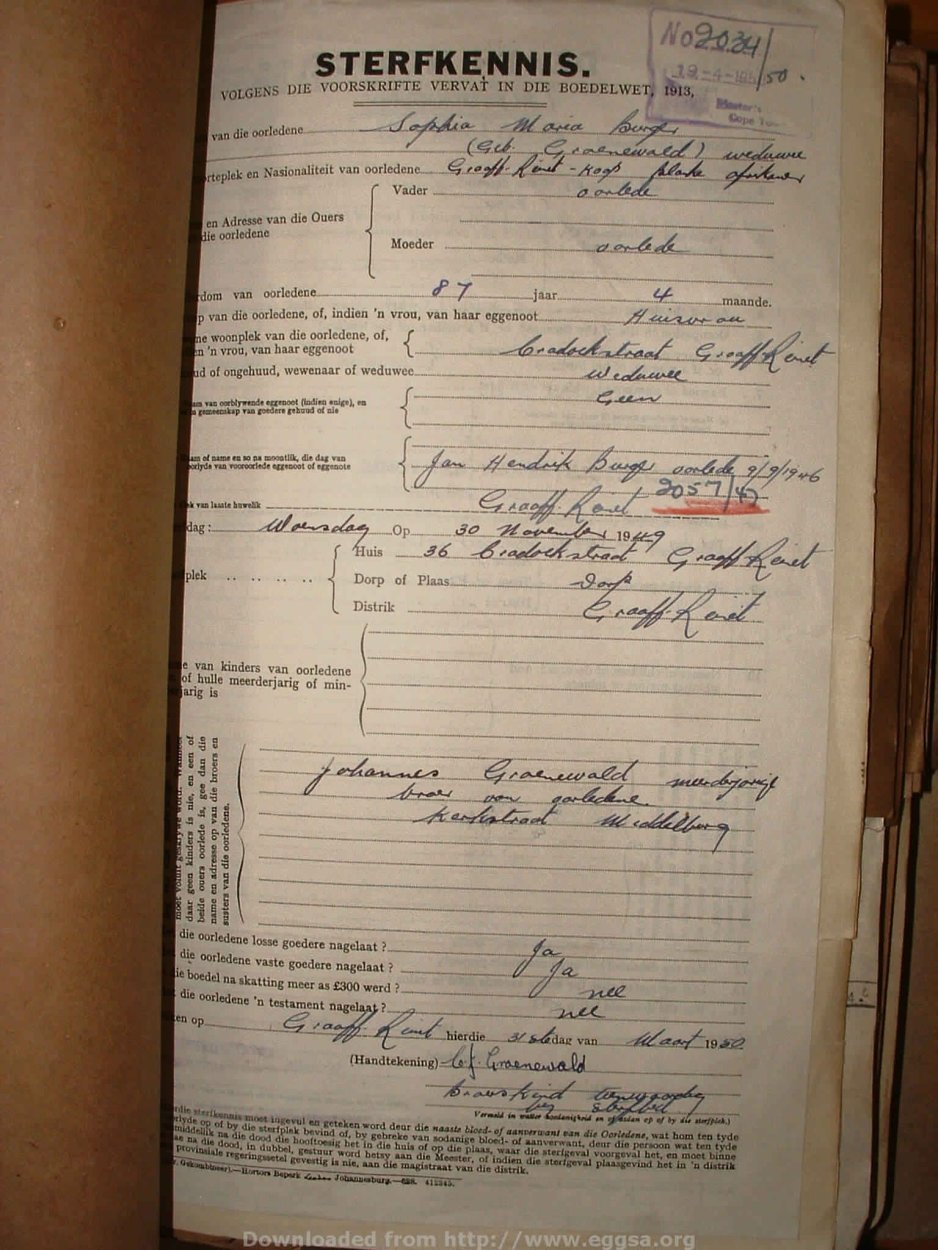 No 2034/50.
19-4-195
Master's
Cape
STERFKENNIS.
VOLGENS DIE VOORSKRIFTE VERVAT IN DIE BOEDELWET, 1913,
van die oorledene Sophia Maria Burger
(Geb. Groenewald) weduwee
rteplek en Nasionaliteit van oorledene Graaff-Reinet - Koop blanke afrikaner
Vader oorlede
en Adresse van die Ouers
die oorledene
Moeder oorlede
rdom van oorledene 87 jaar 4 maande.
p van die oorledene, of, indien 'n vrou, van haar eggenoot Huisvrou
ne woonplek van die oorledene, of,
en 'n vrou, van haar eggenoot Cradockstraat Graaff Reinet
ud of ongehuud, wewenaar of weduwee Weduwee
am van oorblywende eggenoot (indien enige), en Geen
n gemeenskap van goedere gehuud of nie
am of name en so na moontlik, die dag van
oorlyde van vooroorlede eggenoot of eggenote Jan Hendrik Burger oorlede 9/9/1946
2057/47
ek van laaste huwelik Graaff Reinet
dag: Woensdag Op 30 November 1949
Huis 36 Cradockstraat Graaff Reinet
plek
Dorp of Plaas Dorp
Distrik Graaff-Reinet
e van kinders van oorledene
of hulle meerderjarig of min-
jarig is
moet voluit geskrywe word. Wanneer
daar geen kinders is nie, en een of
beide ouers oorlede is, gee dan die
name en adresse op van die broers en
susters van die oorledene.
Johannes Groenewald meerderjarige
broer van oorledene.
Kerkstraat Middelburg
die oorledene losse goedere nagelaat? Ja
die oorledene vaste goedere nagelaat? Ja
ie boedel na skatting meer as £300 werd? nee
die oorledene 'n testament nagelaat? nee
ken op Graaff-Reinet hierdie 31ste dag van Maart 1950
(Handtekening) C. J. Groenewald
Broerskind teenwoordig
by sterfbed
Vermeld in watter hoedanigheid en of
op of by die sterfplek.)
rdie sterfkennis moet ingevul en geteken word deur die naaste bloed- of aanverwant van die Oorledene, wat hom ten tyde
rlyde op of by die sterfplek bevind of, by gebreke van sodanige bloed- of aanverwant, deur die persoon wat ten tyde
middellik na die dood die hooftoesig het in die huis of op die plaas, waar die sterfgeval voorgeval het, en moet binne
ae na die dood, in dubbel, gestuur word betsy aan die Meester, of indien die sterfgeval plaasgevind het in 'n distrik
provinsiale regeringssetel gevestig is nie, aan die magistraat van die distrik.
r. Gekombineer).—Hortors Beperk Johannesburg.—628. 412345.
Downloaded from http://www.eggsa.org